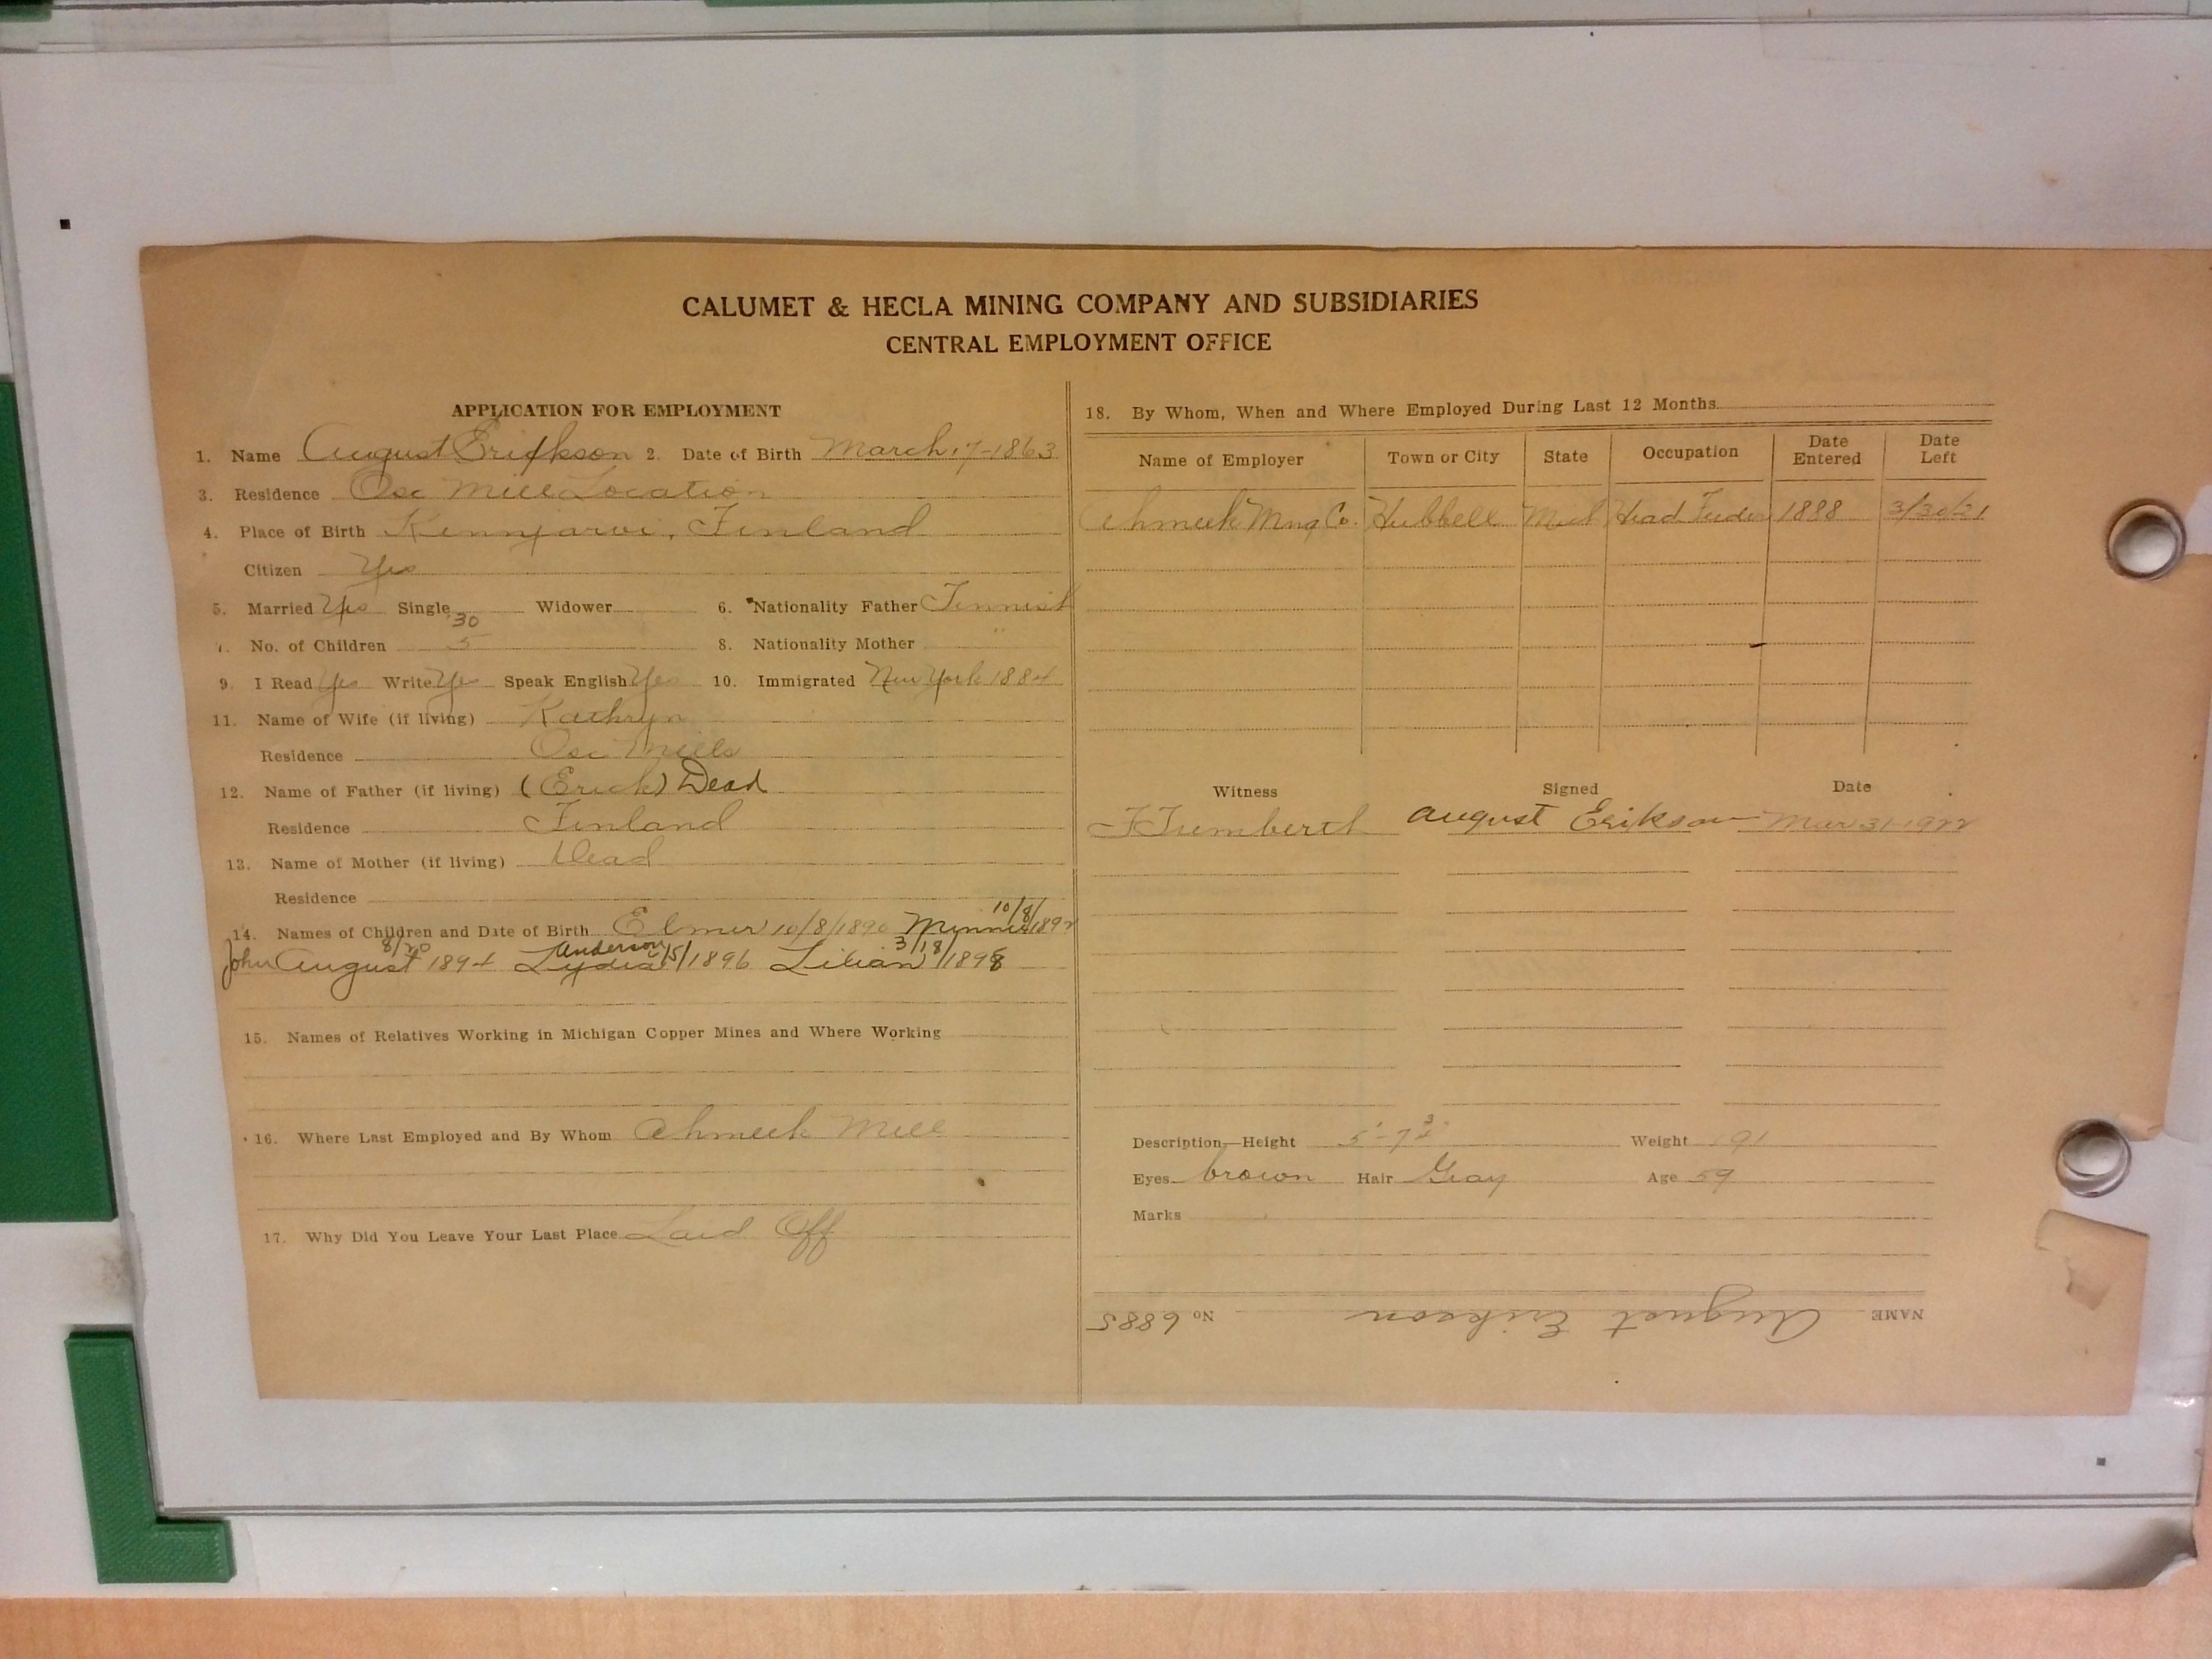 CALUMET & HECLA MINING COMPANY AND SUBSIDIARIES
CENTRAL EMPLOYMENT OFFICE
APPLICATION FOR EMPLOYMENT
1. Name August Erikson 2. Date of Birth March 17-1863
3. Residence Osc Mill Location
4. Place of Birth Kemijarvi, Finland
Citizen Yes
5. Married Yes Single Widower 6. Nationality Father Finnish
30
7. No. of Children 5 8. Nationality Mother "
9. I Read Yes Write Yes Speak English Yes 10. Immigrated New York 1884
11. Name of Wife (if living) Kathryn
Residence Osc Mills
12. Name of Father (if living) (Erick) Dead
Residence Finland
13. Name of Mother (if living) Dead
Residence
14. Names of Children and Date of Birth Elmer 10/8/1890 Minnie 10/8/1892
John August 8/20 1894 Lydia Anderson /5/1896 Lilian 3/18/1898
15. Names of Relatives Working in Michigan Copper Mines and Where Working
16. Where Last Employed and By Whom Ahmeek Mill
17. Why Did You Leave Your Last Place Laid Off
18. By Whom, When and Where Employed During Last 12 Months
Name of Employer Town or City State Occupation Date Entered Date Left
Ahmeek Mng Co. Hubbell Mich Head Feeder 1888 3/30/21
Witness Signed Date
August Erikson Mar 31-1922
Description—Height 5'-7 3/4" Weight 191
Eyes brown Hair Gray Age 59
Marks
NAME August Erikson No 6885